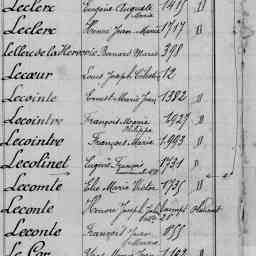 Leclerc Eugène Auguste Marie 1415 D
Leclerc Henri Jean Marie 1717 D
Leclerc de la Herverie Bernard Marie 398
Lecœur Louis Joseph Célestin 12
Lecointe Ernest Marie Jean 1382 D
Lecointre François Marie Philippe 1927 D
Lecointre François Marie 1993 D
Lecolinet Eugène François 1731 D
Lecomte Elie Marie Victor 1735 D
Leconte Honoré Joseph
Leconte François Jean Marie 855
Le Cor Jean